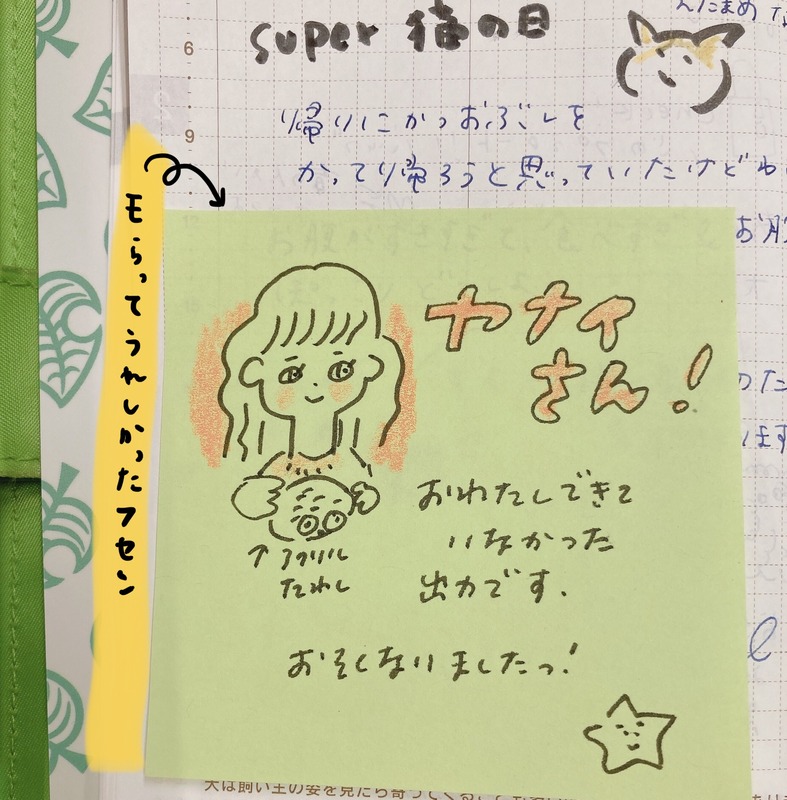 super 猫の日
6
9
帰りにかつおぶしを
かって帰ろうと思っていたけどわ
お腹
もらってうれしかったフセン
ヤナイ
さん!
おわたしできて
いなかった
出力です.
↑アクリル
たわし
おそくなりましたっ!
犬は飼い主の姿を見たら寄ってくる